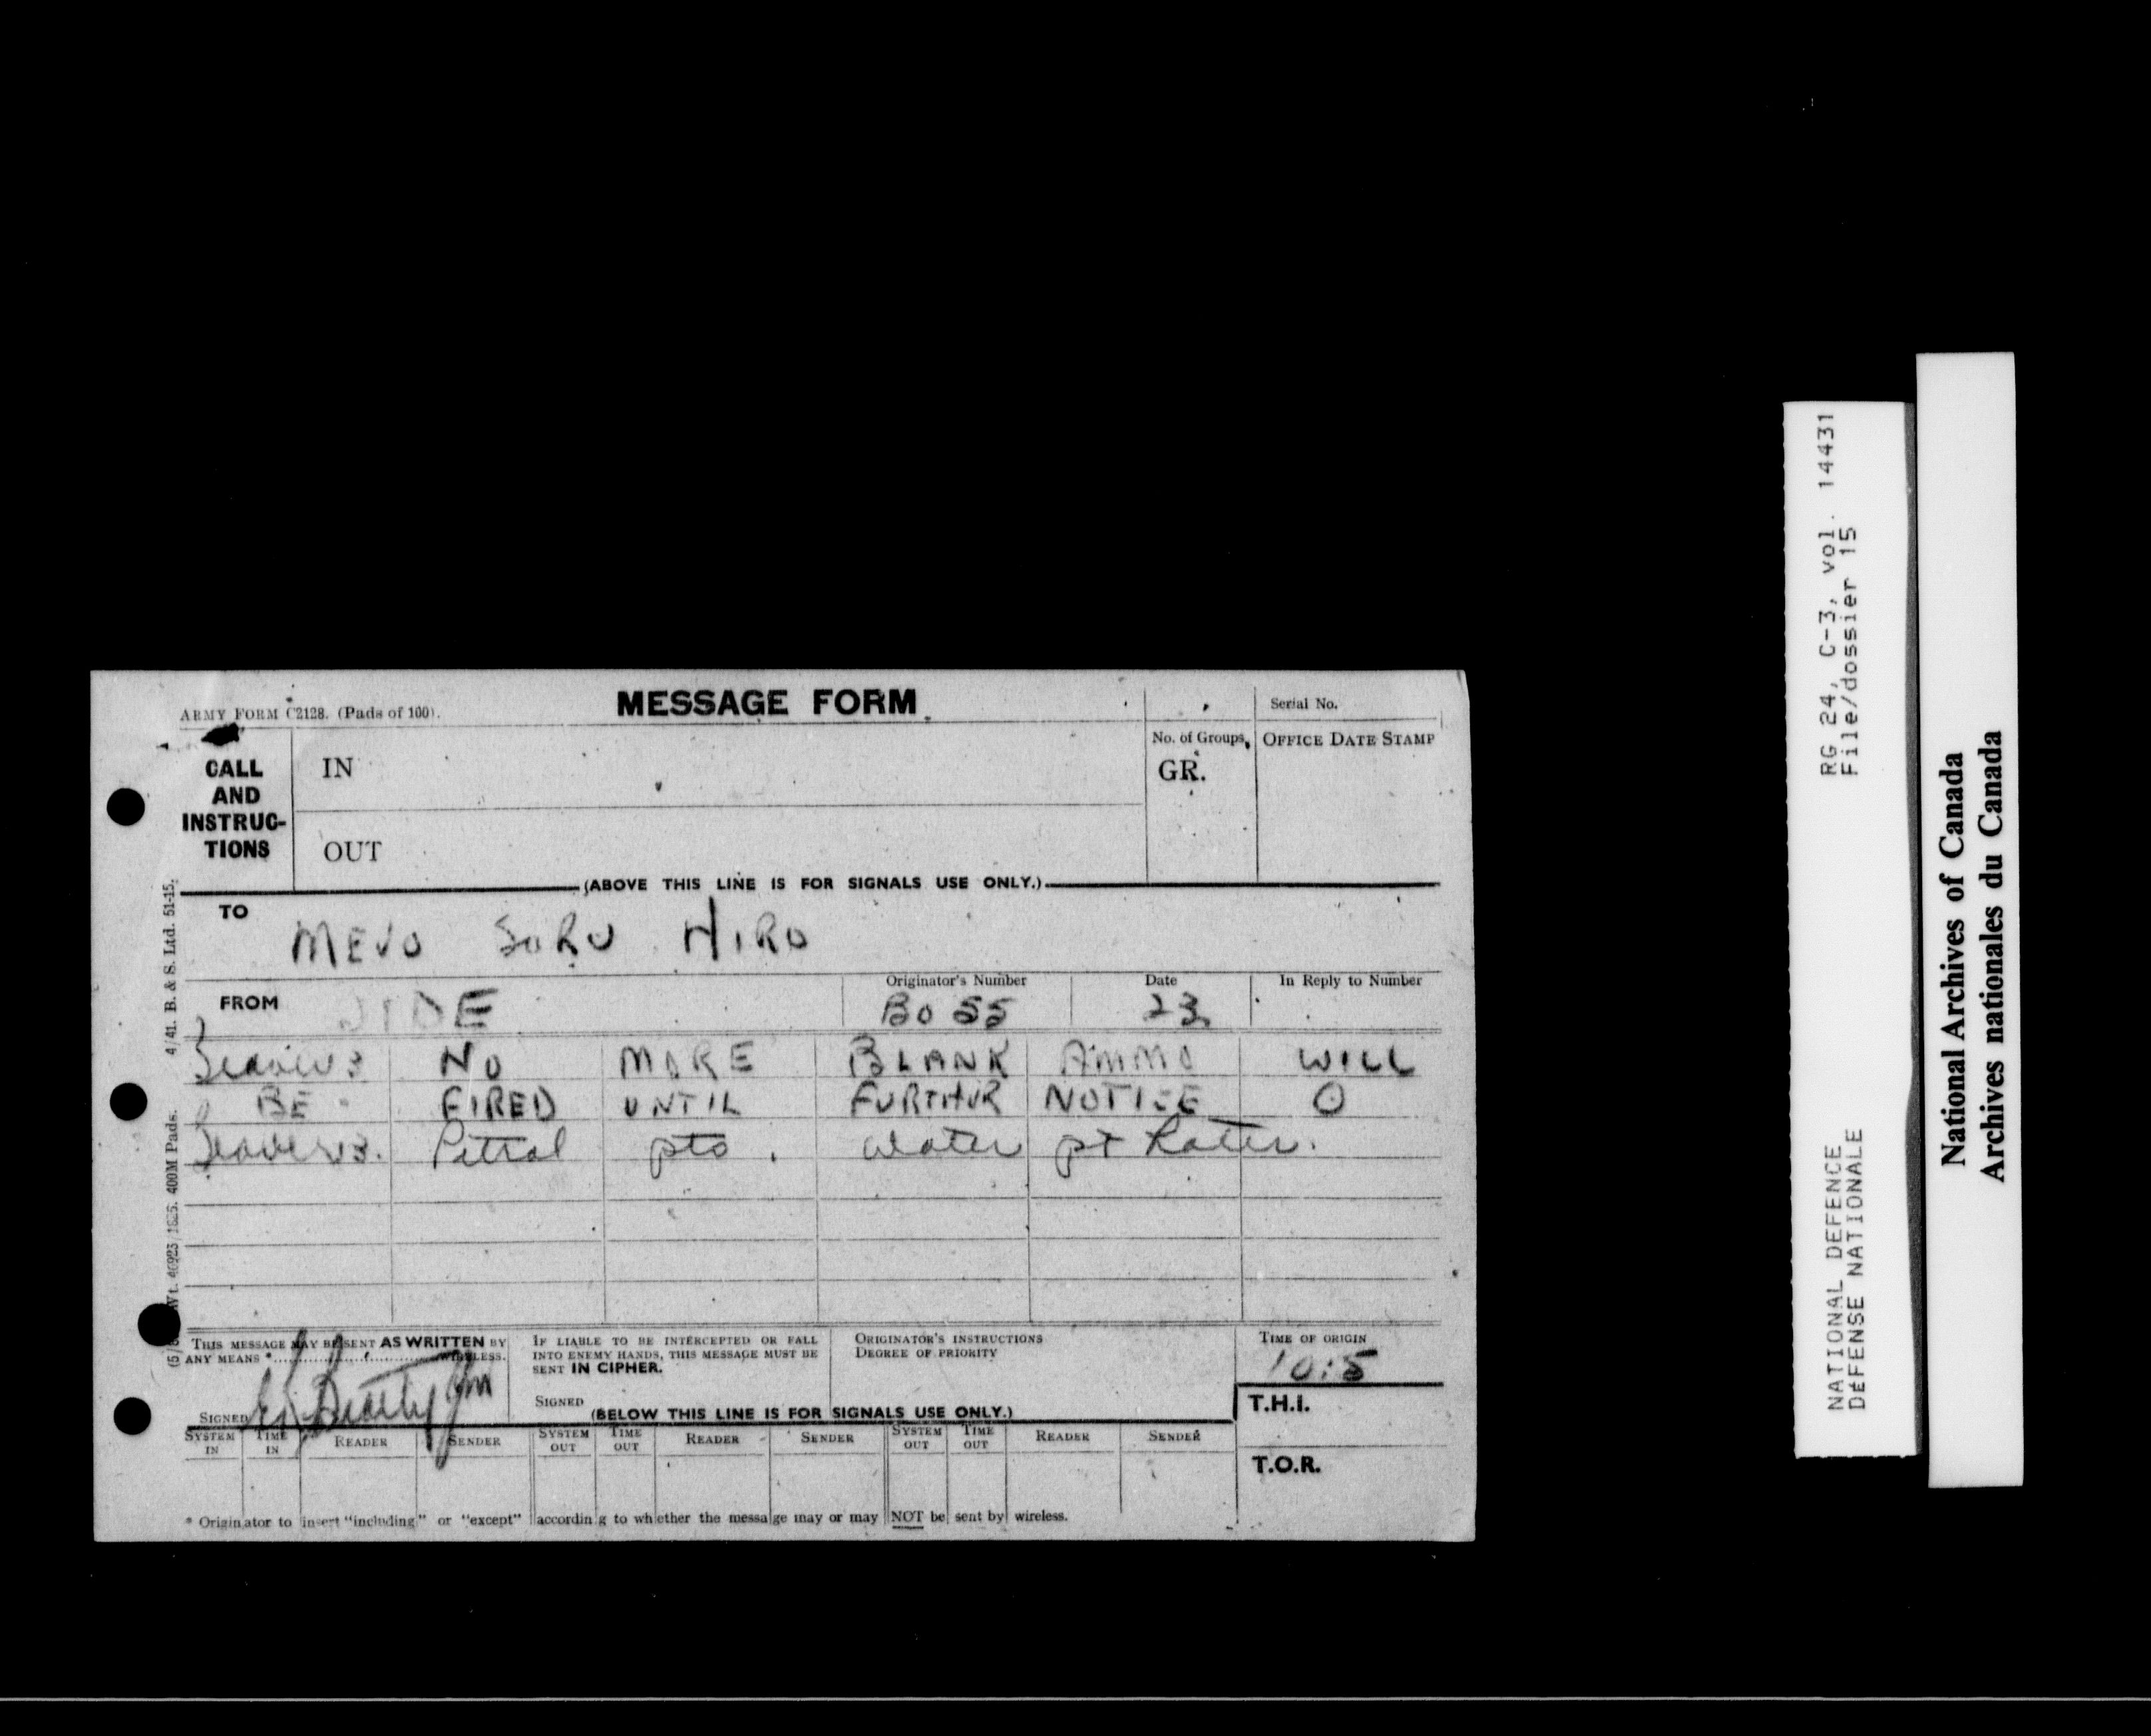 ARMY FORM C2128. (Pads of 100).
MESSAGE FORM
Serial No.
CALL AND INSTRUC-TIONS
IN
No. of Groups
GR.
OFFICE DATE STAMP
OUT
(ABOVE THIS LINE IS FOR SIGNALS USE ONLY.)
TO
MEVO SORU HIRO
FROM
Originator's Number
BO 55
Date
23
In Reply to Number
NO MORE BLANK AMMO WILL
BE FIRED UNTIL FURTHUR NOTICE O
Petrol pto. Water pt Later.
THIS MESSAGE MAY BE SENT AS WRITTEN BY ANY MEANS * WIRELESS.
SIGNED
IF LIABLE TO BE INTERCEPTED OR FALL INTO ENEMY HANDS, THIS MESSAGE MUST BE SENT IN CIPHER.
SIGNED
ORIGINATOR'S INSTRUCTIONS
DEGREE OF PRIORITY
TIME OF ORIGIN
T.H.I.
(BELOW THIS LINE IS FOR SIGNALS USE ONLY.)
SYSTEM IN TIME IN READER SENDER SYSTEM OUT TIME OUT READER SENDER SYSTEM OUT TIME OUT READER SENDER
T.O.R.
* Originator to insert "including" or "except" according to whether the message may or may NOT be sent by wireless.
4/41. B. & S. Ltd. 51-15.
400M Pads.
RG 24, C-3, vol. 14431
File/dossier 15
NATIONAL DEFENCE
DEFENSE NATIONALE
National Archives of Canada
Archives nationales du Canada